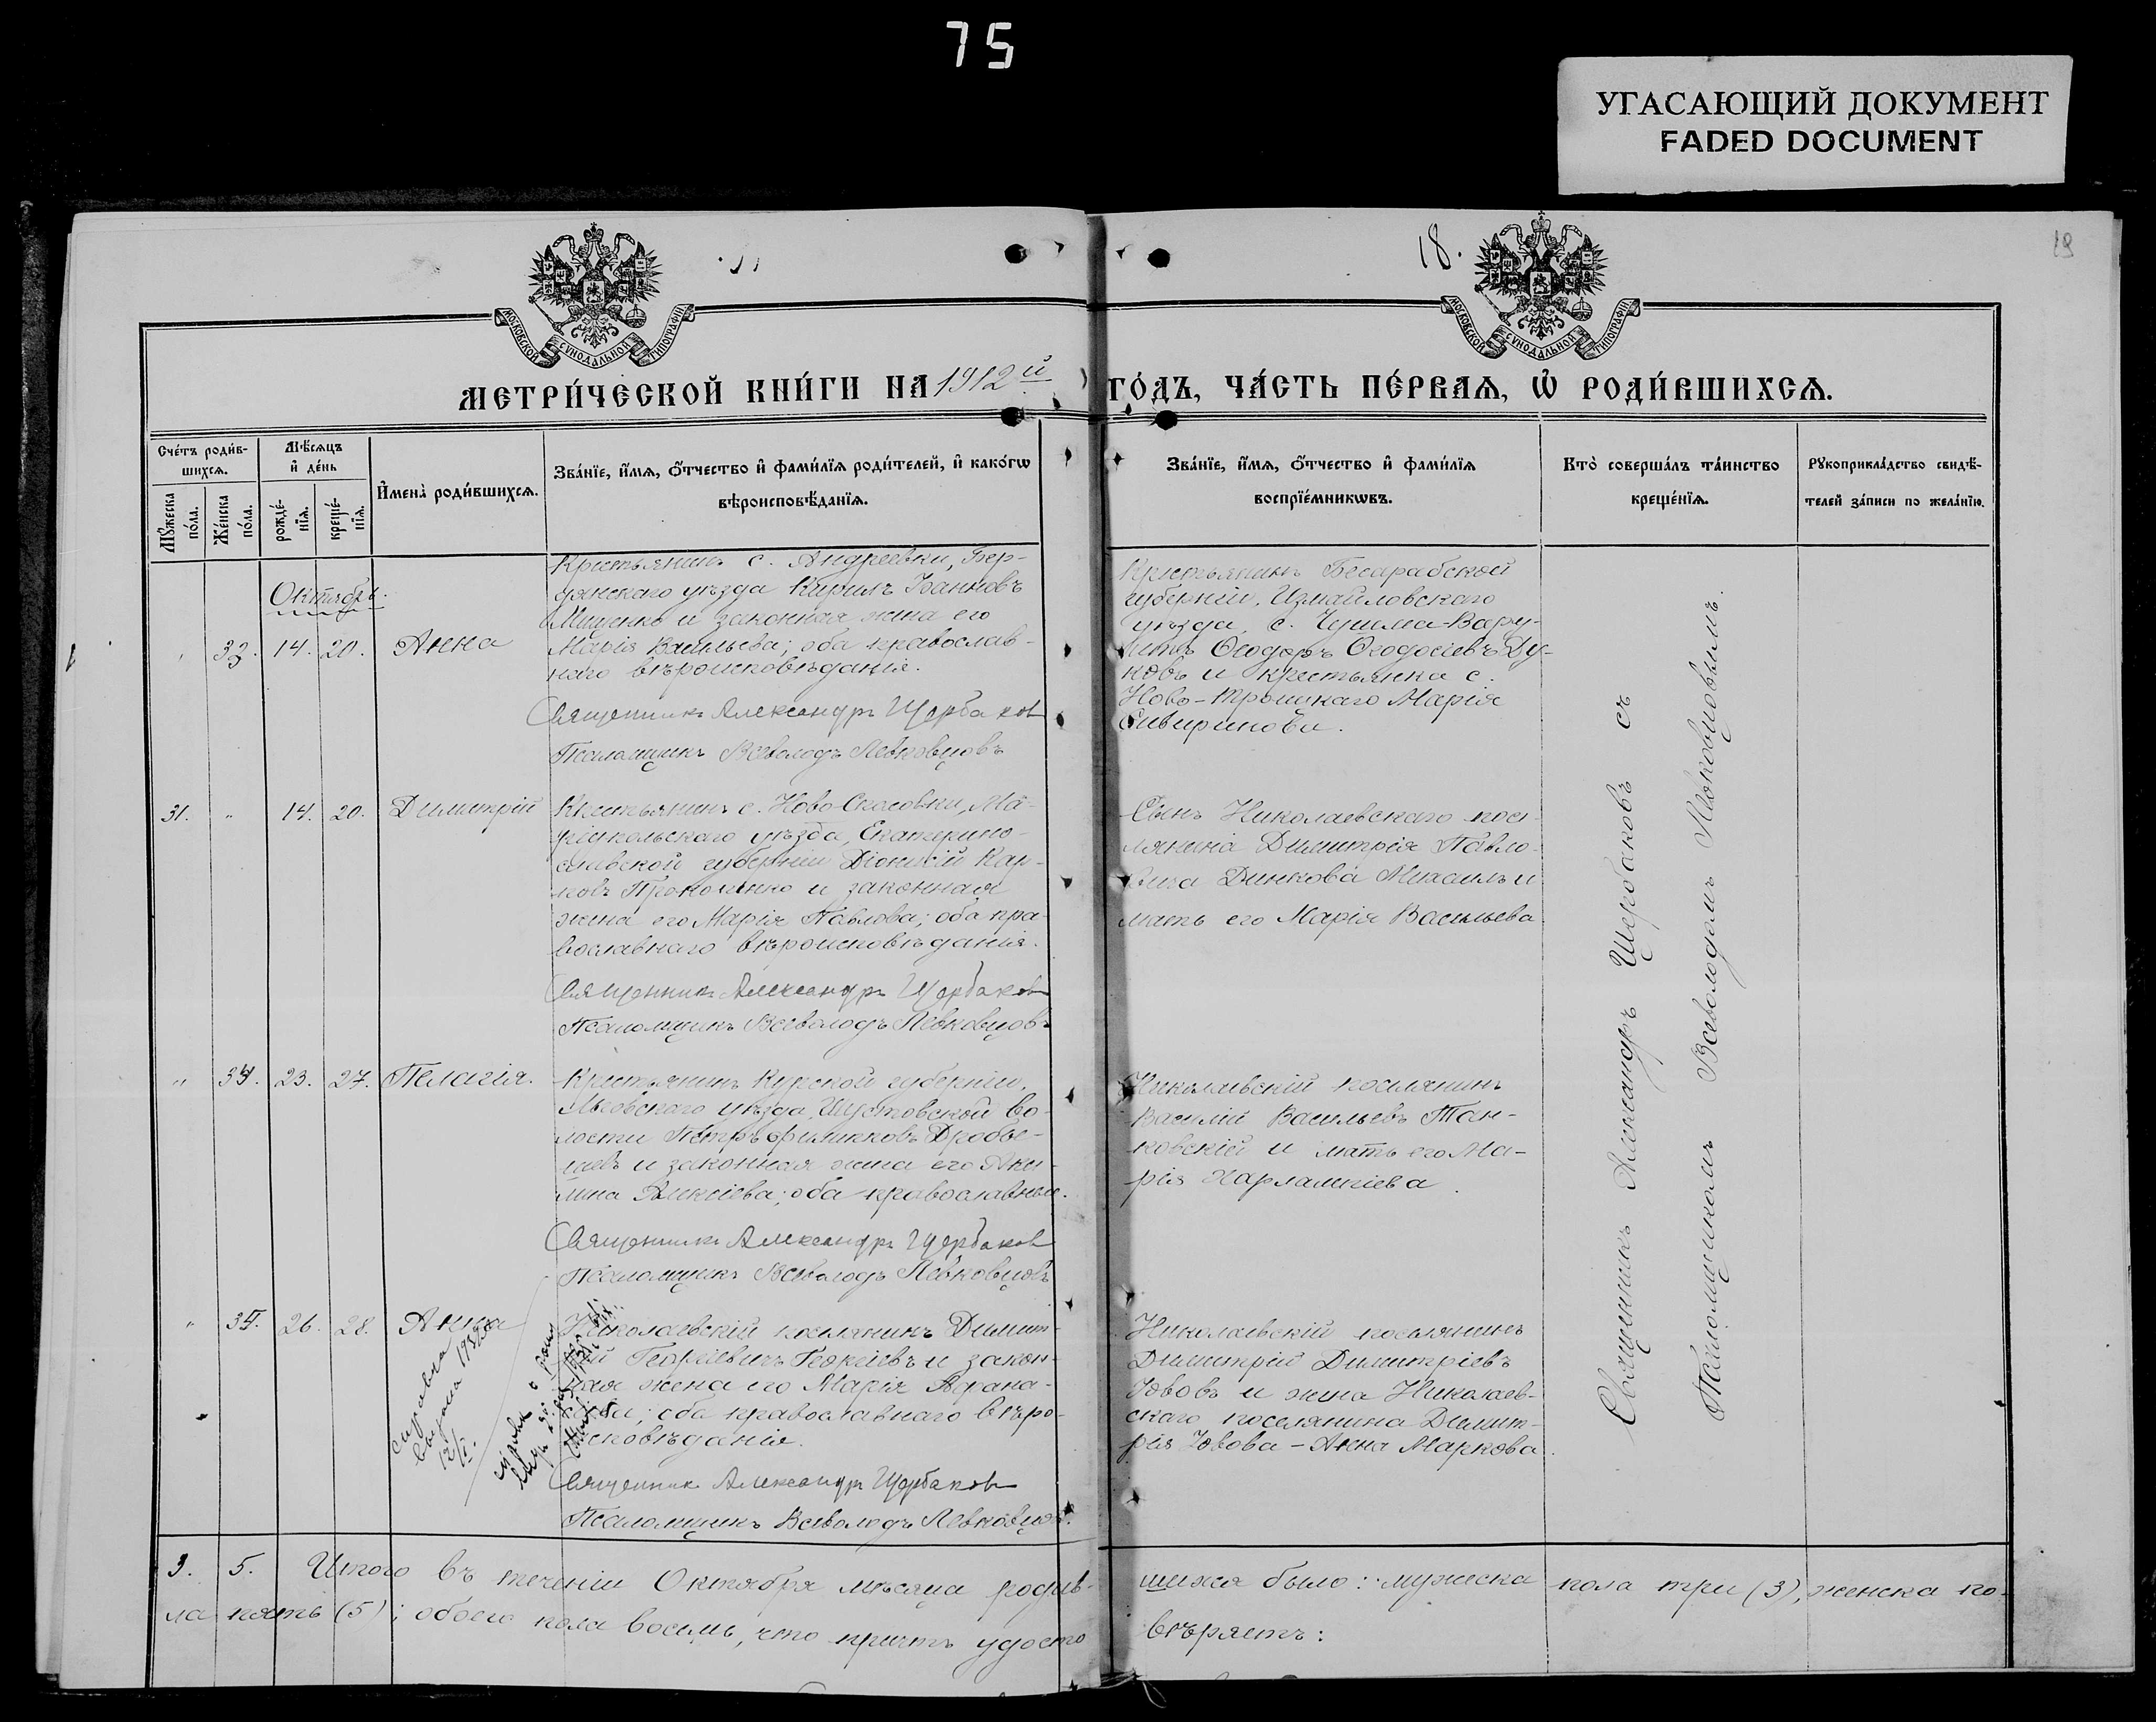 75
УГАСАЮЩИЙ ДОКУМЕНТ
FADED DOCUMENT
18.
19
МОСКОВСКОЙ СѴНОДАЛЬНОЙ ТИПОГРАФІИ
МОСКОВСКОЙ СѴНОДАЛЬНОЙ ТИПОГРАФІИ
МЕТРИ́ЧЕСКОЙ КНИ́ГИ НА 1912й ГО́ДЪ, ЧА́СТЬ ПЕ́РВАѦ, Ѡ҆ РОДИ́ВШИХСѦ.
Сче́тъ роди́в-
шихсѧ.
Мꙋ́жеска по́ла.
Же́нска по́ла.
Мѣ́сѧцъ
и҆ де́нь
рожде́-
нїѧ.
креще́-
нїѧ.
И҆мена̀ роди́вшихсѧ.
Зва́нїе, и҆́мѧ, ѻ҆́тчество и҆ фами́лїѧ роди́телей, и҆ како́гѡ
вѣроисповѣ́данїѧ.
Зва́нїе, и҆́мѧ, ѻ҆́тчество и҆ фами́лїѧ
воспрїе́мникѡвъ.
Кто̀ соверша́лъ та́инство
креще́нїѧ.
Рꙋкоприкла́дство свидѣ́-
телей за́писи по жела́нїю.
Октябрь.
33. 14. 20. Анна
Крестьянинъ с. Андреевки, Бер-
дянскаго уѣзда Кириллъ Іоанновъ
Мищенко и законная жена его
Марія Васильева; оба православ-
наго вѣроисповѣданія.
Священникъ Александръ Щербаковъ
Псаломщикъ Всеволодъ Левковцовъ
Крестьянинъ Бесарабской
губерніи, Измаиловскаго
уѣзда, с. Чушма-Вару-
итъ Ѳеодоръ Ѳеодосіевъ Ду-
ковъ и крестьянка с.
Ново-Троицкаго Марія
Сивиринова.
31. " 14. 20. Димитрій
Крестьянинъ с. Ново-Спасовки, Ма-
ріупольскаго уѣзда, Екатерино-
славской губерніи Діонисій Кар-
повъ Прокопенко и законная
жена его Марія Павлова; оба пра-
вославнаго вѣроисповѣданія.
Священникъ Александръ Щербаковъ
Псаломщикъ Всеволодъ Левковцовъ
Сынъ Николаевскаго посе-
лянина Димитрія Павло-
вича Динкова Михаилъ и
мать его Марія Васильева
" 34. 23. 27. Пелагія.
Крестьянинъ Курской губерніи,
Льговскаго уѣзда, Шустовской во-
лости Петръ Филипповъ Дробы-
шевъ и законная жена его Аки-
лина Алексіева; оба православные.
Священникъ Александръ Щербаковъ
Псаломщикъ Всеволодъ Левковцовъ
Николаевскій поселянинъ
Василій Васильевъ Тан-
ковскій и мать его Ма-
рія Харлампіева
" 35. 26. 28. Анна
Николаевскій поселянинъ Димит-
рій Георгіевичъ Геокгіевъ и закон-
ная жена его Марія Афана-
сьева; оба православнаго вѣро-
исповѣданія.
Священникъ Александръ Щербаковъ
Псаломщикъ Всеволодъ Левковцовъ.
Николаевскій поселянинъ
Димитрій Димитріевъ
Іововъ и жена Николаев-
скаго поселянина Димит-
рія Іовова - Анна Маркова
справка
выдана 193
12/I.
Священникъ Александръ Щербаковъ съ
Псаломщикомъ Всеволодомъ Левковцовымъ.
3. 5. Итого въ теченіи Октября мѣсяца родив-
шихся было: мужеска пола три (3), женска по-
ла пять (5); обоего пола восемь, что причтъ удосто
вѣряетъ: